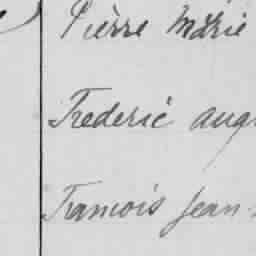 Pièrre Marie
Frederic aug
Francois Jean